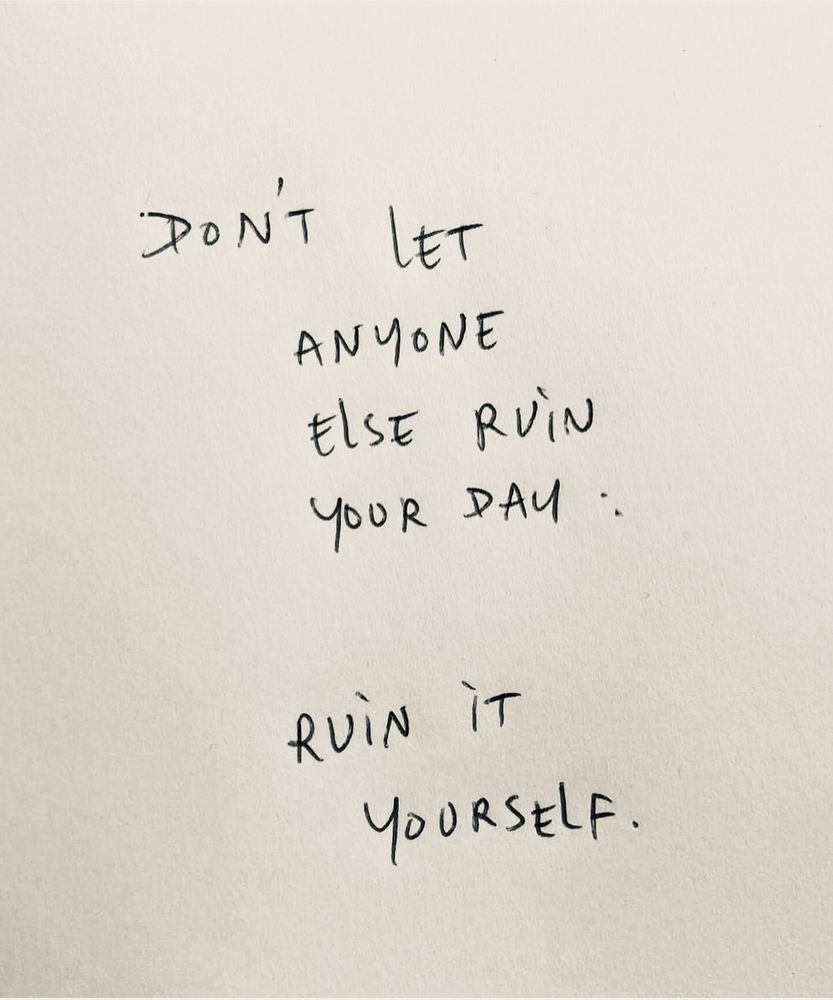 DON'T LET
ANYONE
ELSE RUiN
YOUR DAY :
RUiN iT
YOURSELF.